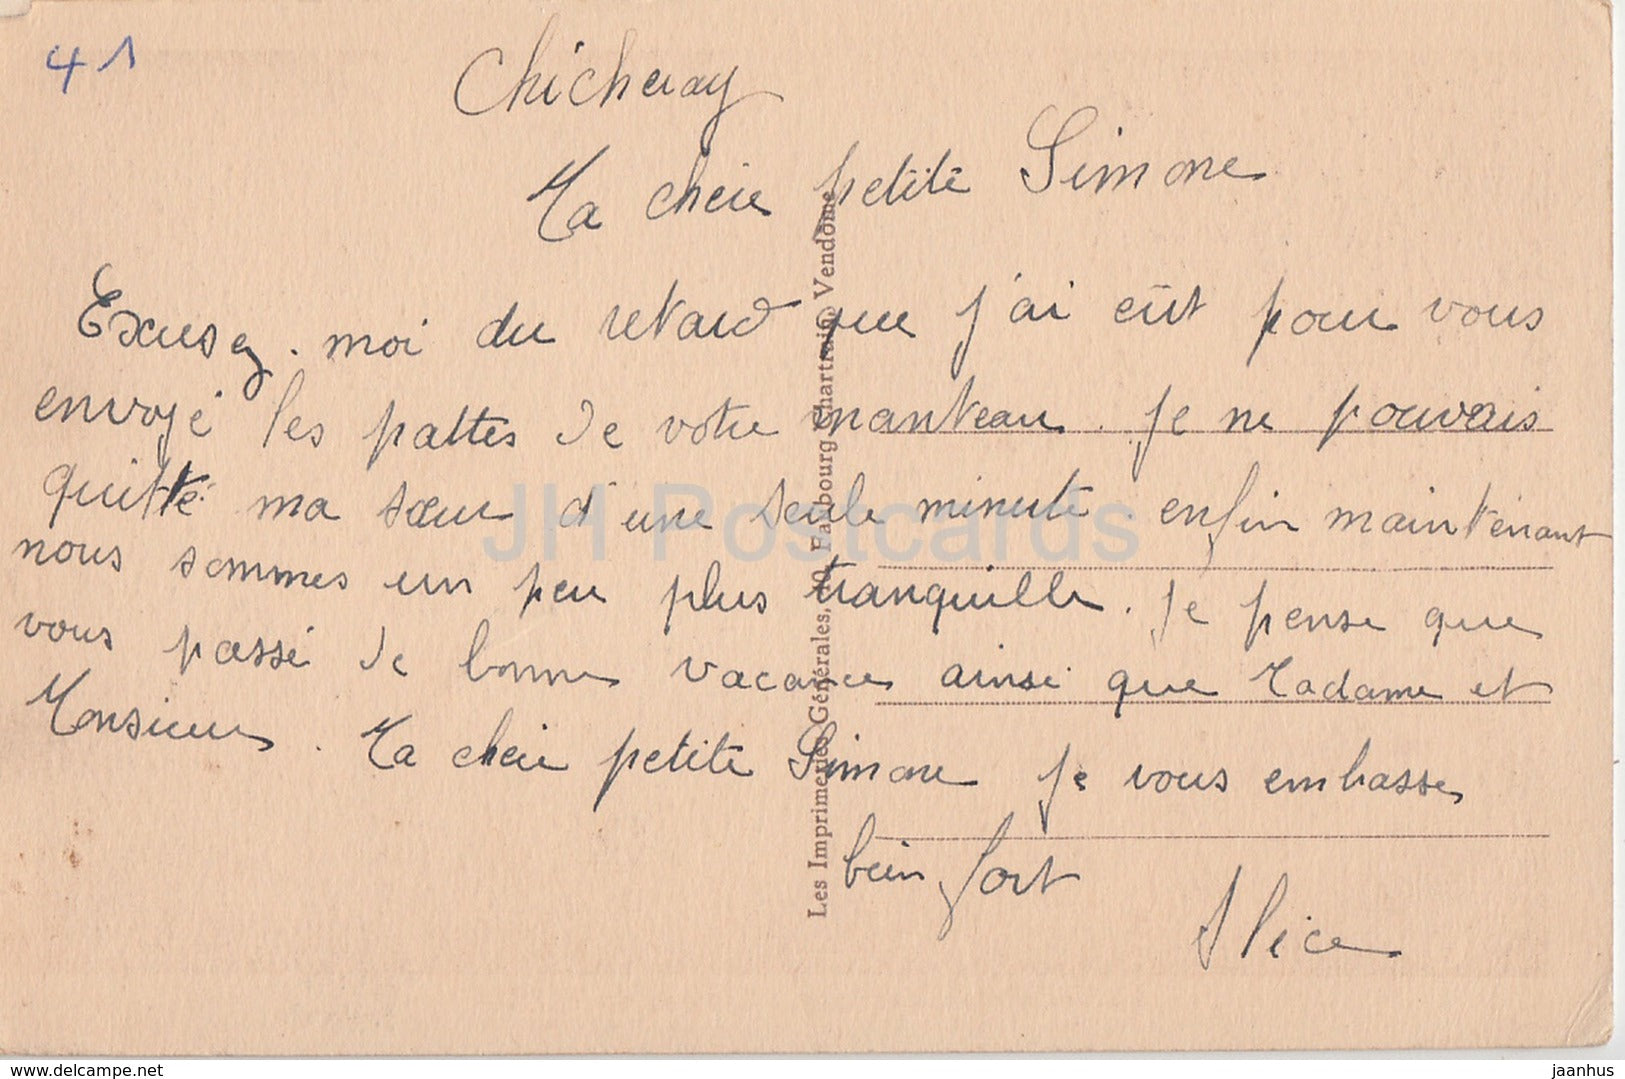 41
Chicheray
Ma cheie petite Simone
Excusez. moi du retard que j'ai eût pour vous
envoyé les pattes de votre manteau. Je ne pouvais
quitté ma sœur d'une seule minute. enfin maintenant
nous sommes un peu plus tranquille. Je pense que
vous passé de bonne vacance ainsi que Madame et
Monsieur. Ma cheie petite Simone je vous embasse
bein fort
Alice
Les Imprimeries Générales, 40, Faubourg Chartrain, Vendôme
JH Postcards
www.delcampe.net
jaanhus